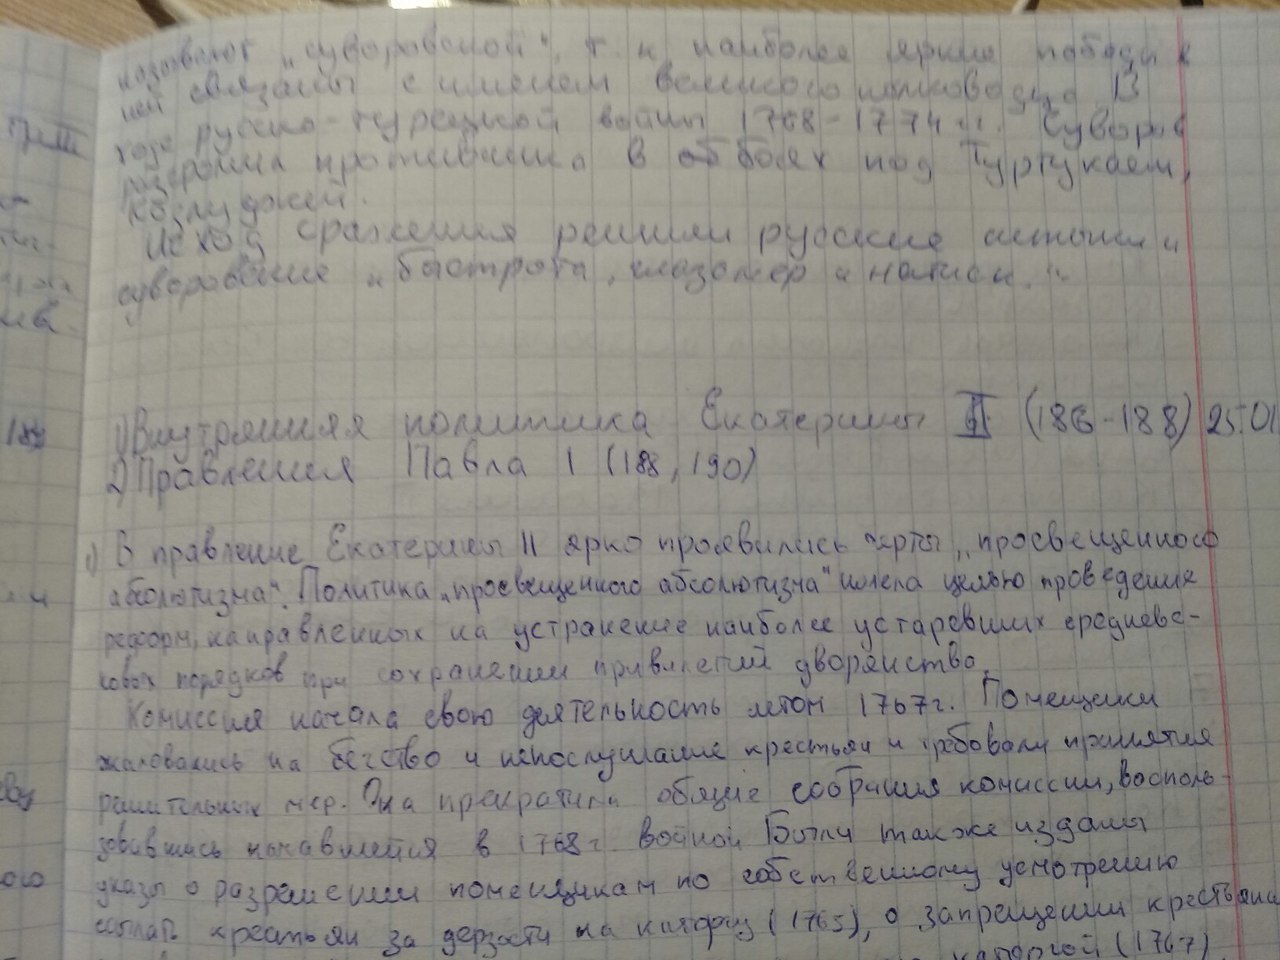 называют "суворовской", т. к наиболее яркие победы в
ней связаны с именем великого полководца В
ходе русско-турецкой войны 1768-1774 гг. Суворов
разгромил противника в боях под Туртукаем,
Козлуджей.
Исход сражения решили русские штыки и
суворовские "быстрота, глазомер и натиск."
1) Внутренняя политика Екатерины II (186-188) 25.01
2) Правления Павла I (188, 190)
1) В правление Екатерины II ярко проявились черты "просвещенного
абсолютизма". Политика "просвещенного абсолютизма" имела целью проведение
реформ, направленных на устранение наиболее устаревших средневе-
ковых порядков при сохранении привилегий дворянства.
Комиссия начала свою деятельность летом 1767г. Помещики
жаловались на бегство и непослушание крестьян и требовали принятия
решительных мер. Она прекратила общие собрания комиссии, восполь-
зовавшись начавшейся в 1768г войной Были также изданы
указы о разрешении помещикам по собственному усмотрению
ссылать крестьян за дерзость на каторгу (1765), о запрещении крестьянам
каторгой (1767)